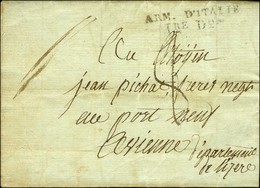 ARM. D'ITALIE
1RE Don
Au Citoyen
jean pichat freres negt
au port
Vienne Departement
de L'izere